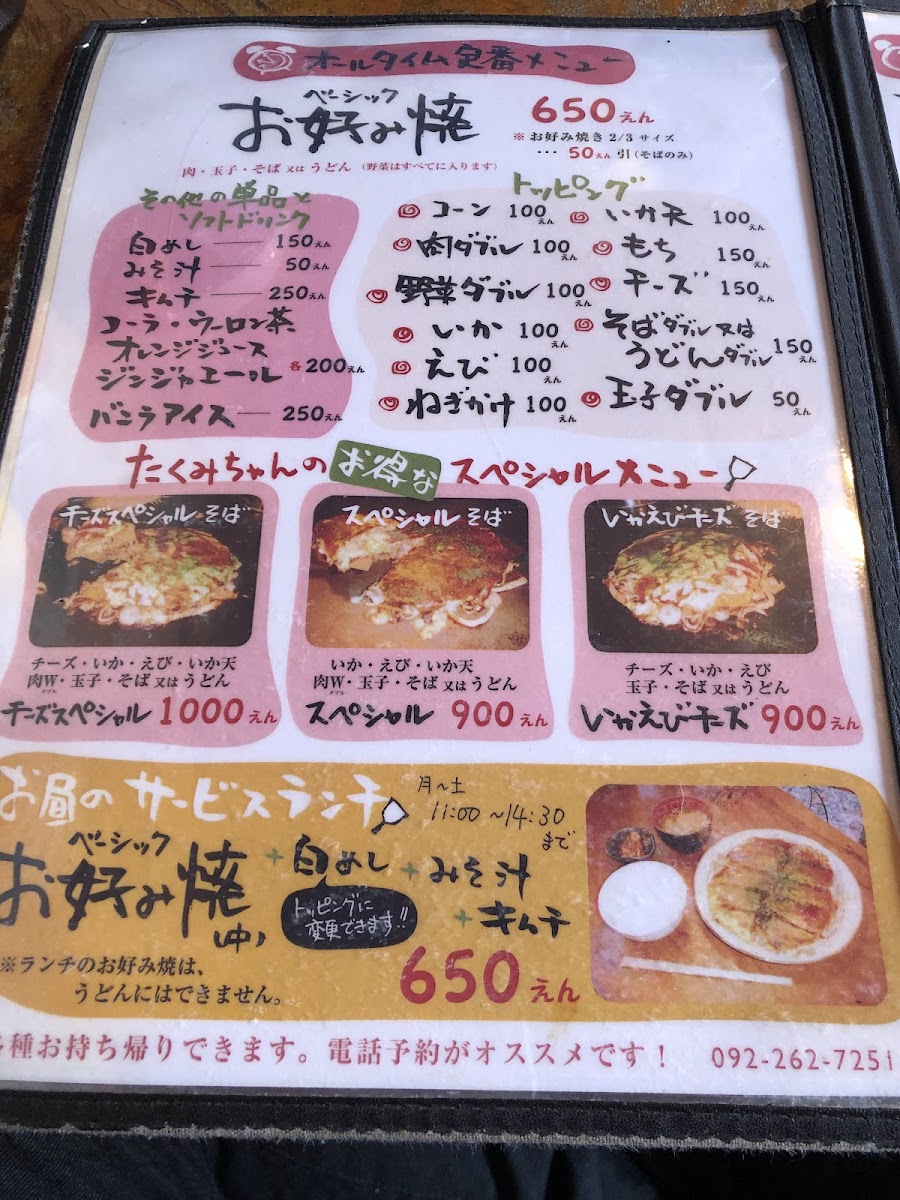 オールタイム定番メニュー
ベーシック
お好み焼 650えん
※お好み焼き2/3サイズ
… 50えん引(そばのみ)
肉・玉子・そば又はうどん (野菜はすべてに入ります)
その他の単品と
ソフトドリンク
白めし 150えん
みそ汁 50えん
キムチ 250えん
コーラ・ウーロン茶
オレンジジュース
ジンジャエール 各200えん
バニラアイス 250えん
トッピング
コーン 100えん
肉ダブル 100えん
野菜ダブル 100えん
いか 100えん
えび 100えん
ねぎかけ 100えん
いか天 100えん
もち 150えん
チーズ 150えん
そばダブル又は
うどんダブル 150えん
玉子ダブル 50えん
たくみちゃんのお得なスペシャルメニュー
チーズスペシャルそば
チーズ・いか・えび・いか天
肉W・玉子・そば又はうどん
ダブル
チーズスペシャル 1000えん
スペシャルそば
いか・えび・いか天
肉W・玉子・そば又はうどん
ダブル
スペシャル 900えん
いかえびチーズそば
チーズ・いか・えび
玉子・そば又はうどん
いかえびチーズ 900えん
お昼のサービスランチ
月~土
11:00~14:30
まで
ベーシック
お好み焼(中) + 白めし + みそ汁
+ キムチ
トッピングに
変更できます!!
650えん
※ランチのお好み焼は、
うどんにはできません。
種お持ち帰りできます。電話予約がオススメです! 092-262-7251